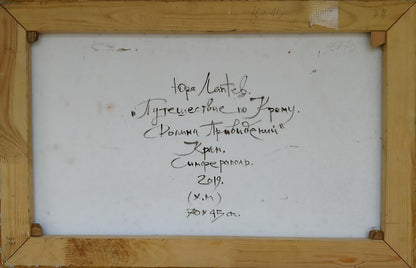 Юра Лаптев.
"Путешествие по Крыму.
Долина Привидений"
Крым.
Симферополь.
2019.
(х.м)
70x45 см.